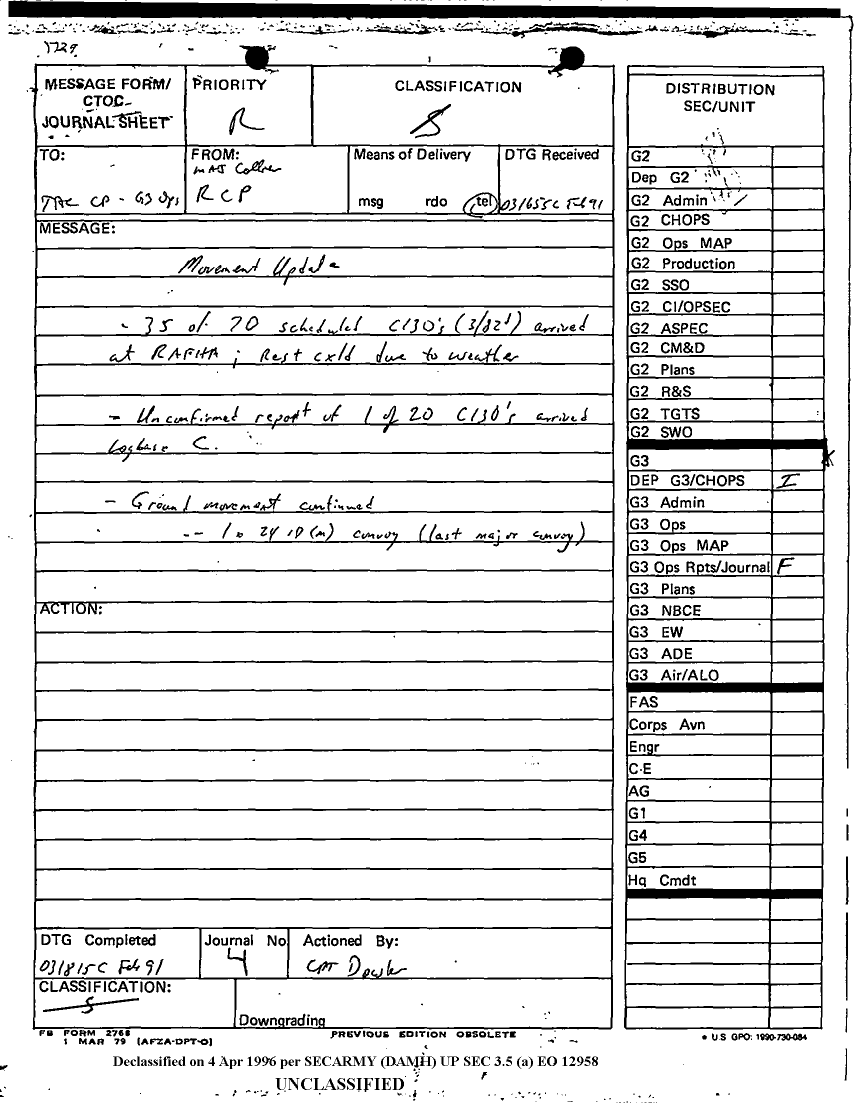 MESSAGE FORM/
CTOC
JOURNAL SHEET
PRIORITY
R
CLASSIFICATION
S
TO:
TAC CP - G3 Ops
FROM:
MAJ
RCP
Means of Delivery
msg rdo tel
DTG Received
031655C Feb 91
MESSAGE:
Movement Update
- 35 of 70 scheduled C130's (3/82d) arrived
at RAFHA ; Rest cxld due to weather
- Unconfirmed report of 1 of 20 C130's arrived
Logbase C.
- Ground movement continued
-- 24 ID (M) convoy (last major convoy)
ACTION:
DTG Completed
031815C Feb 91
Journal No
4
Actioned By:
CPT
CLASSIFICATION:
S
Downgrading
FB FORM 2768
1 MAR 79 (AFZA-DPT-O)
PREVIOUS EDITION OBSOLETE
DISTRIBUTION
SEC/UNIT
G2
Dep G2
G2 Admin
G2 CHOPS
G2 Ops MAP
G2 Production
G2 SSO
G2 CI/OPSEC
G2 ASPEC
G2 CM&D
G2 Plans
G2 R&S
G2 TGTS
G2 SWO
G3
DEP G3/CHOPS I
G3 Admin
G3 Ops
G3 Ops MAP
G3 Ops Rpts/Journal F
G3 Plans
G3 NBCE
G3 EW
G3 ADE
G3 Air/ALO
FAS
Corps Avn
Engr
C-E
AG
G1
G4
G5
Hq Cmdt
* U.S GPO: 1990-730-084
Declassified on 4 Apr 1996 per SECARMY (DAMH) UP SEC 3.5 (a) EO 12958
UNCLASSIFIED